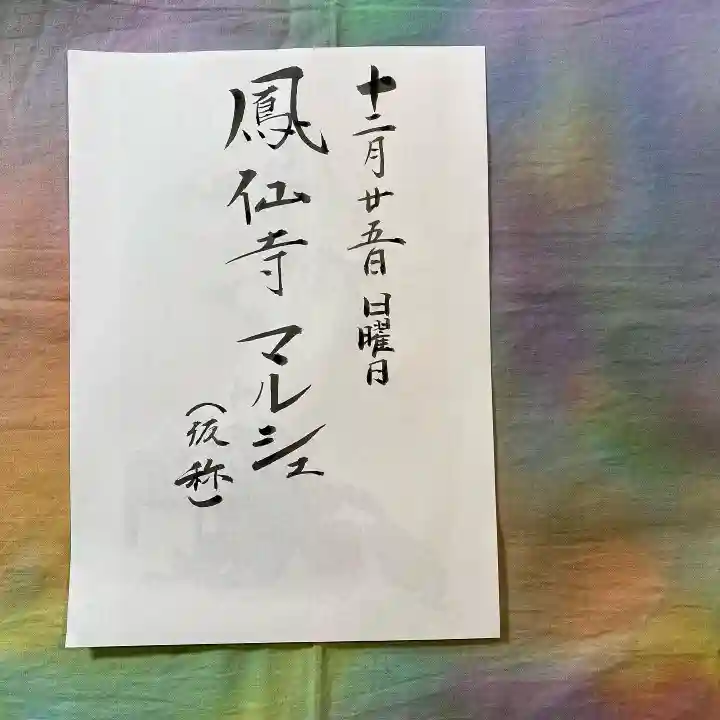 十二月廿五日 日曜日
鳳仙寺 マルシェ
(仮称)